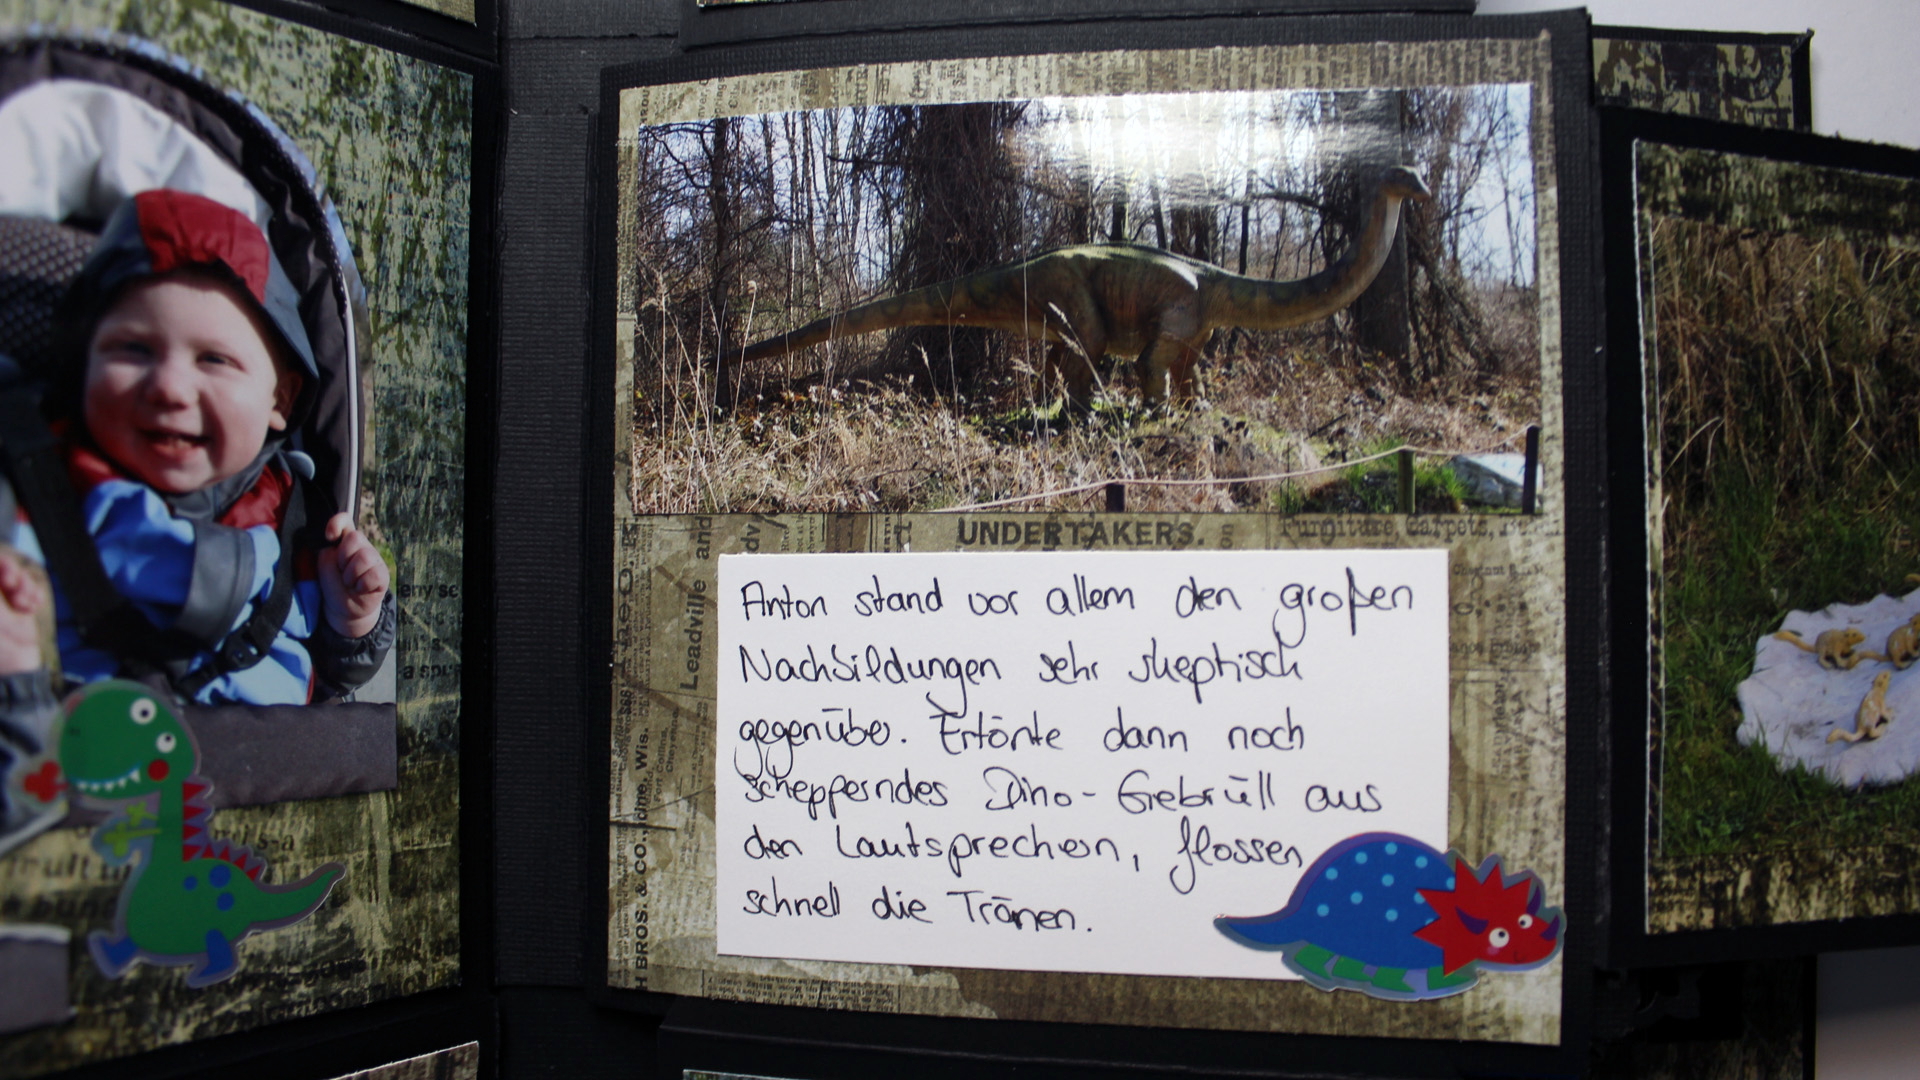 UNDERTAKERS.
Furniture, Carpets,
Leadville and
BROS. & CO.,
Wis.
Anton stand vor allem den großen
Nachbildungen sehr skeptisch
gegenüber. Ertönte dann noch
schepperndes Dino-Gebrüll aus
den Lautsprechern, flossen
schnell die Tränen.